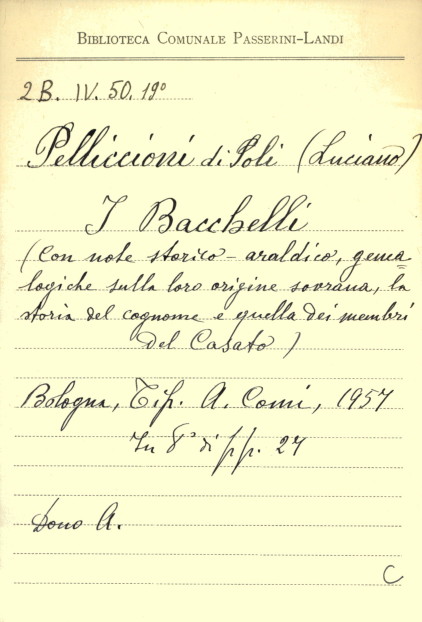 BIBLIOTECA COMUNALE PASSERINI-LANDI
2B. IV. 50. 19º
Pelliccioni di Poli (Luciano)
I Bacchelli
(Con note storico-araldico, genea=
logiche sulla loro origine sovrana, la
storia del cognome e quella dei membri
del Casato)
Bologna, Tip. A. Comi, 1957
In 8º di pp. 27
Dono A.
C